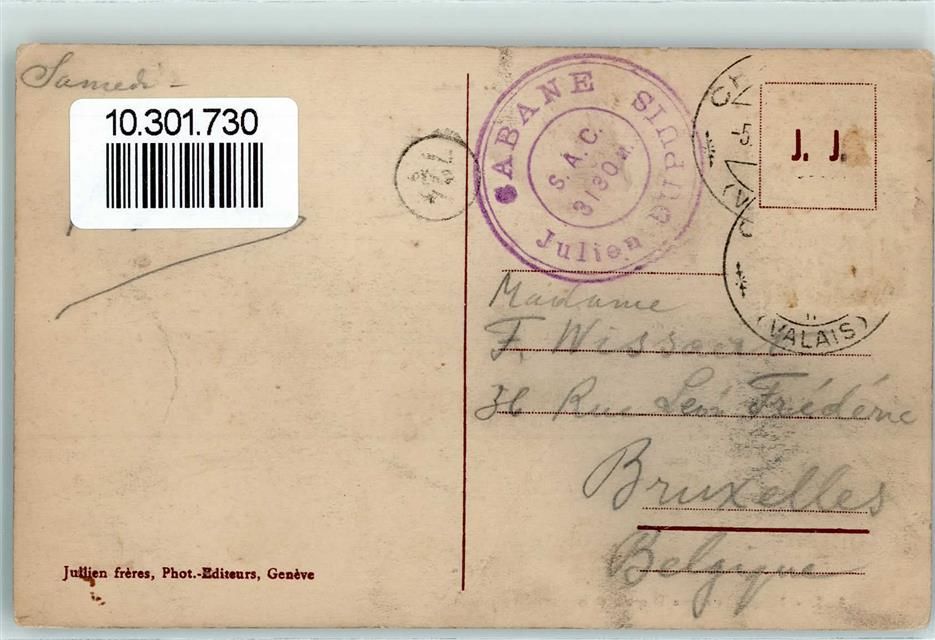 Samedi -
10.301.730
CABANE
Julien Dupuis
S. A. C.
3130 M.
-5.
(VALAIS)
J. J.
Madame
F. Wissaert
36 Rue Léon Frédéric
Bruxelles
Belgique
Jullien frères, Phot.-Editeurs, Genève